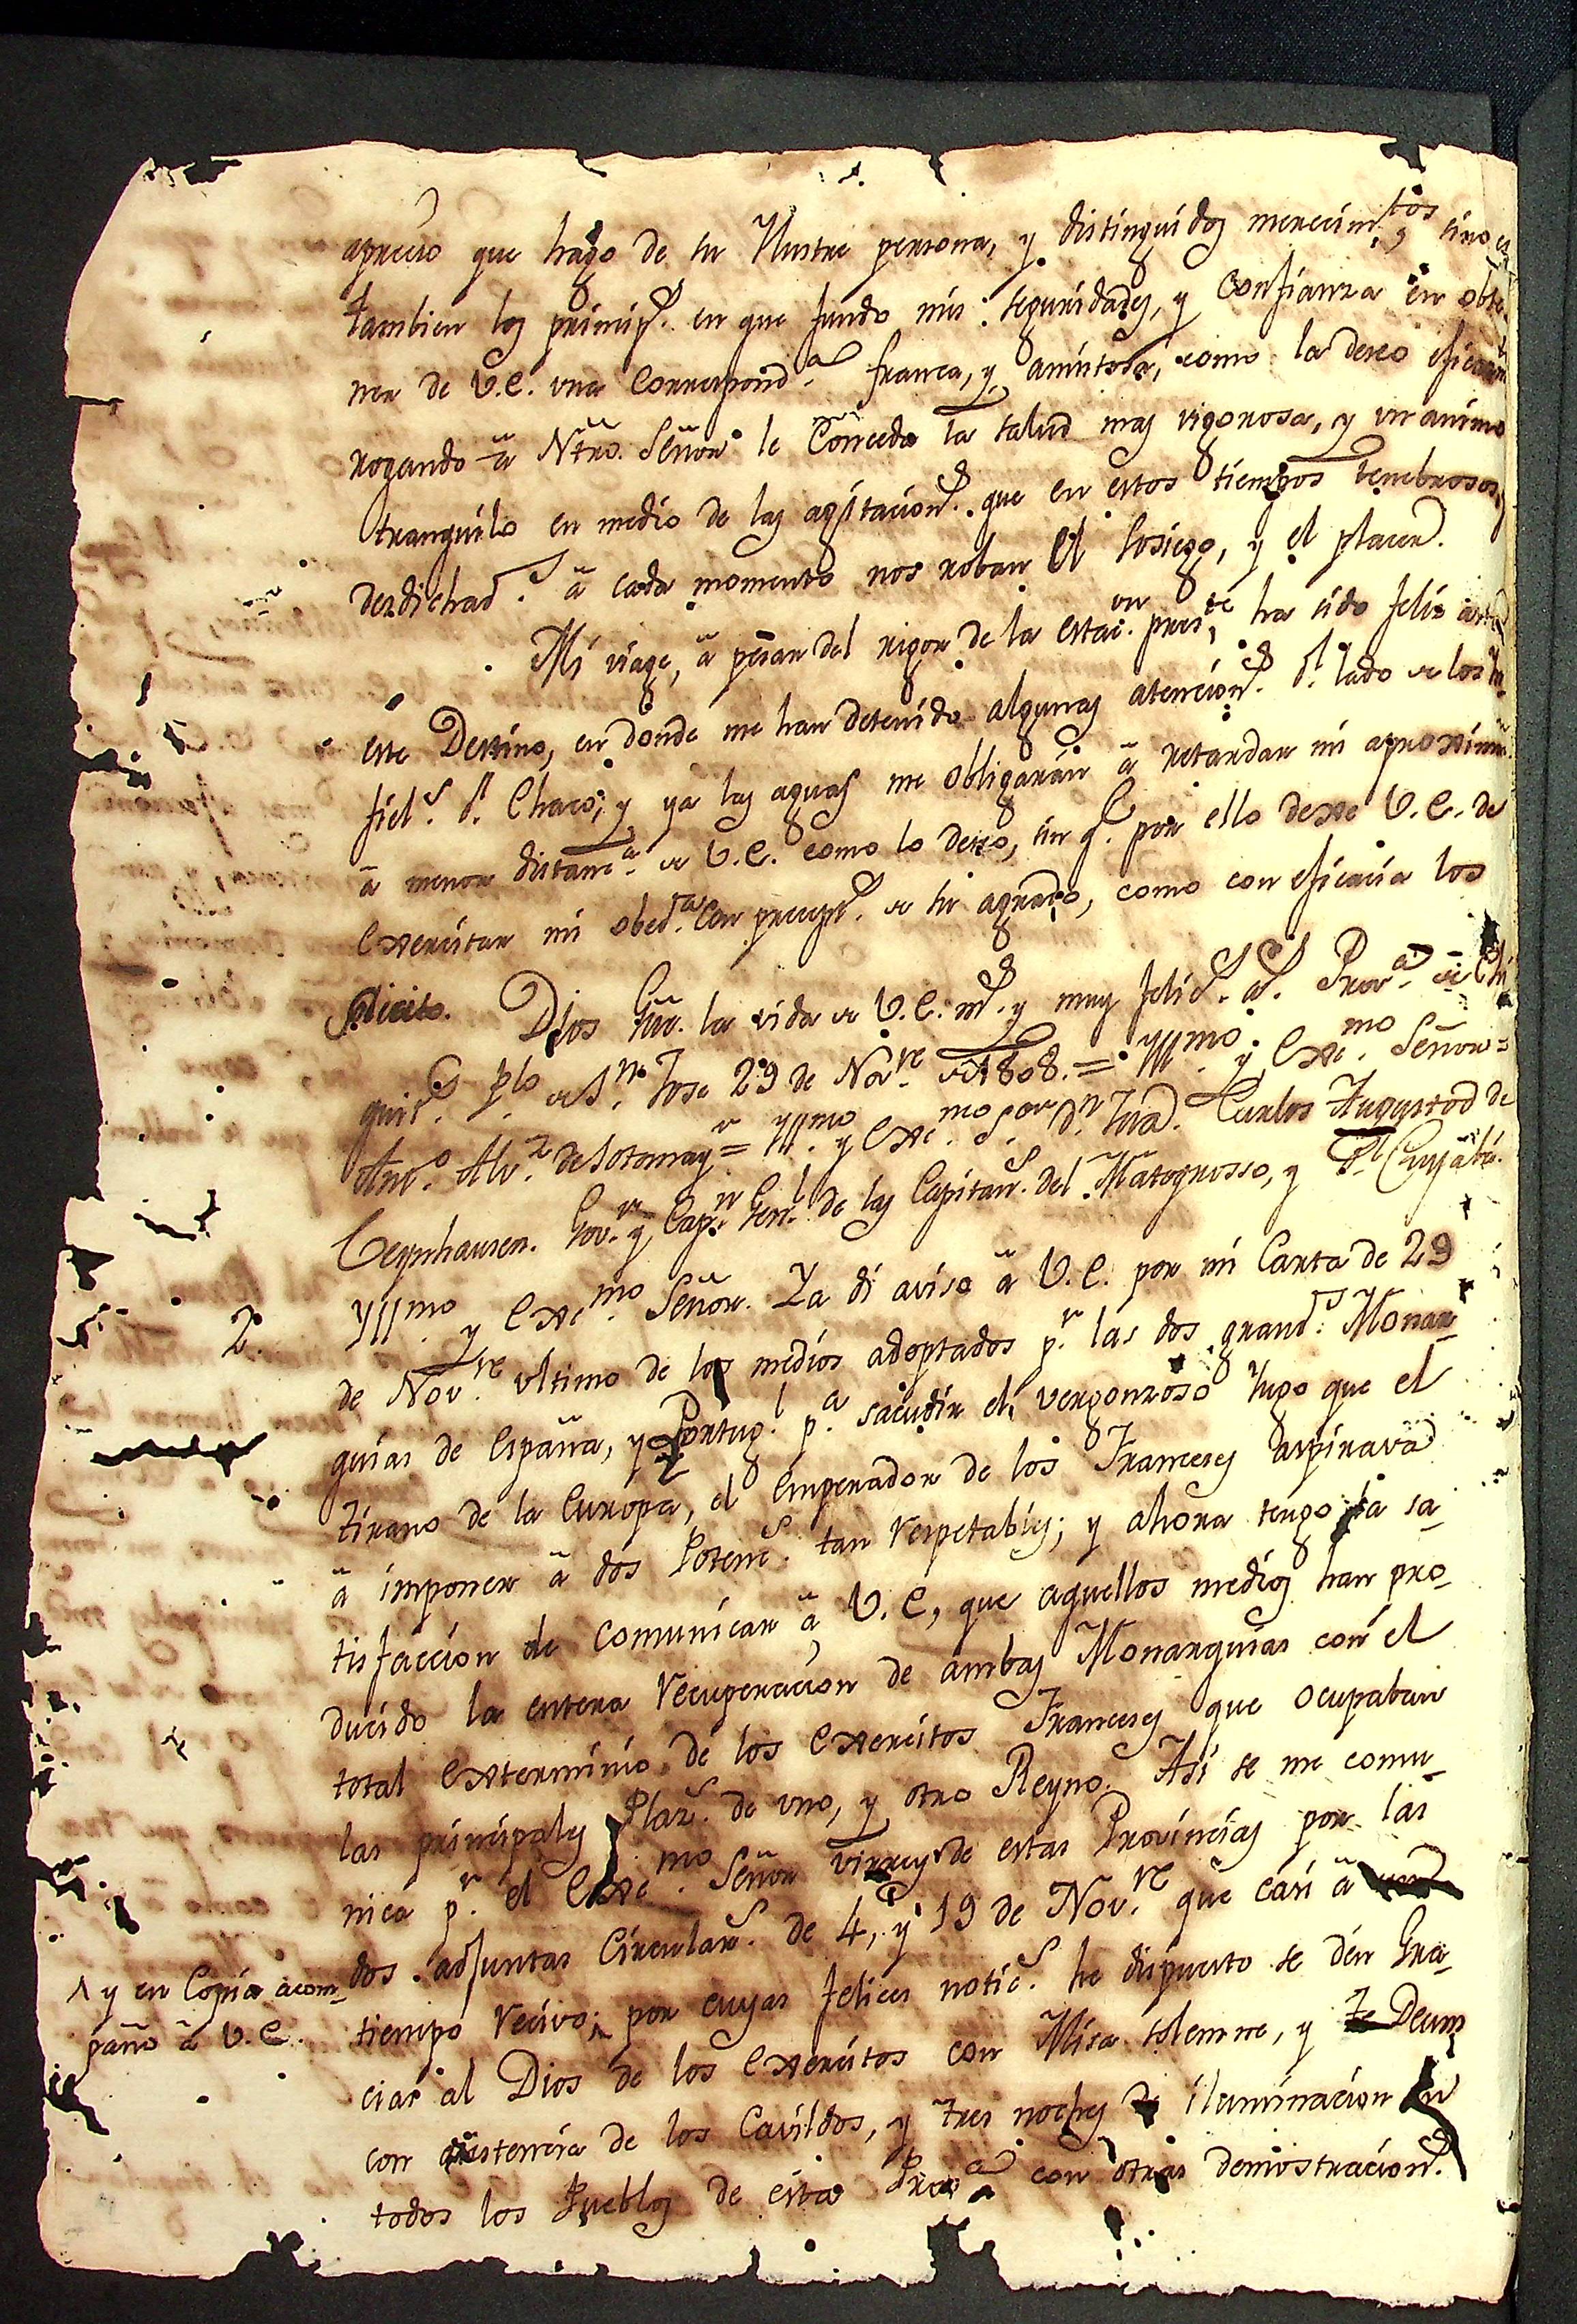 aprecio que hago de su Ilustre persona, y distinguidos merecim.tos sino es
tambien los princip.s en que fundo mis seguridades, y Confianza en obte-
ner de V.E. una Correspond.a franca, y amistosa, como la deseo eficazm
rogando â Ntro. Señor le Conceda la salud mas vigorosa, y un animo
tranquilo en medio de las agitacion.s que en estos tiempos tenebrosos, y
desdichad.s â cada momento nos roban el sosiego, y el placer.
Mi viage, â pesar del rigor de la estac.on pres.te ha sido feliz asta
este Destino, en donde me han detenido algunas atencion.s d.l lado de los In-
fiel.s d.l Chaco; y ya las aguas me obligarán â retardar mi aproxim.n
â menor distanc.a de V.E. como lo deseo, sin q.e por ello dexe V.E. de
exercitar mi obed.a con precept.s de su agrado, como con eficacia los
solicito. Dios Gûe. la vida de V.E. m.s y muy felic.s a.s Prov.a de Chi
quit.s P.lo de S.n Jose 29 de Nov.re de 1808. = Yll.mo y Exc.mo Señor =
Ant.o Alv.z de Sotomay.r = Yll.mo y Exc.mo S.or D.n Juan Carlos Augusto d
Oeynhausen. Gov.or y Cap.n Gen.l de las Capitan.s del Matogrosso, y d.l Cuyabá.
2. Yll.mo y Exc.mo Señor. Ya di aviso â V.E. por mi Carta de 29
de Nov.re ultimo de los medios adoptados p.r las dos grand.s Monar-
quias de España, y Portug.l p.a sacudir el vergonzoso Yugo que el
tirano de la Europa, el Emperador de los Franceses aspirava
â imponer â dos Potenc.s tan respetables; y ahora tengo la sa-
tisfaccion de comunicar â V.E, que aquellos medios han pro-
ducido la entera recuperacion de ambas Monarquias con el
total exterminio de los exercitos Franceses que ocupaban
las principales Plaz.s de uno, y otro Reyno. Asi se me comu-
nica p.r el Exc.mo Señor Virrey de estas Provincias por las
dos adjuntas Circular.s de 4, y 19 de Nov.re que casi â un
tiempo recivo; por cuyas felices notic.s he dispuesto se den Gra-
^ y en Copia acom-
paño â V.E.
cias al Dios de los exercitos con Misa solemne, y Te Deum
con asistencia de los Cavildos, y tres noches de iluminacion en
todos los Pueblos de esta Prov.a con otras demostracion.s